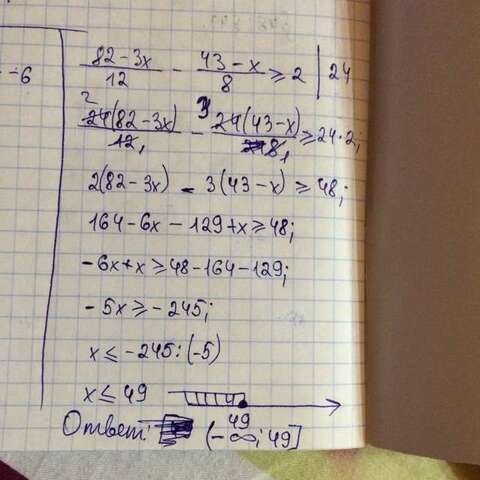 -6
(82-3x)/12 - (43-x)/8 ≥ 2 | 24
2 24(82-3x)/12, - 3 24(43-x)/8, ≥ 24·2;
2(82-3x) - 3(43-x) ≥ 48;
164-6x-129+x≥48;
-6x+x≥48-164-129;
-5x≥-245;
x≤-245:(-5)
x≤49
49
Ответ: (-∞; 49]